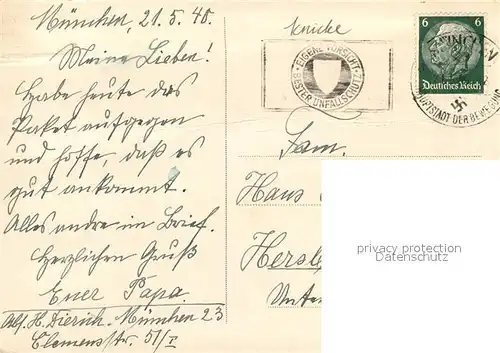 München, 21.5.40.
Meine Lieben!
Habe heute das
Paket aufgegen
und hoffe, daß es
gut ankommt.
Alles andre im Brief.
Herzlichen Gruß
Euer Papa.
Abs. H. Dierich. München 23
Clemensstr. 51/I
Knicke
EIGENE VORSICHT
BESTER UNFALLSCHUTZ
6 6
Deutsches Reich
MÜNCHEN
HAUPTSTADT DER BEWEGUNG
Fam.
Haus
Hersb
Unte
privacy protection
Datenschutz